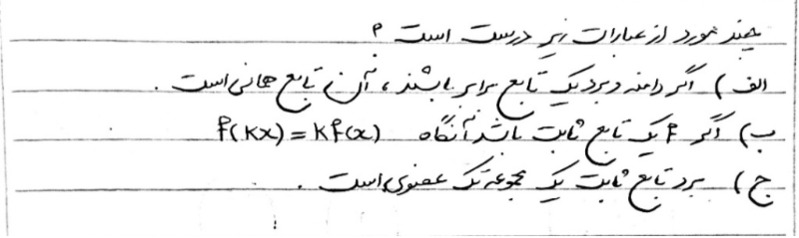 چند مورد از عبارات زیر درست است ؟
الف ) اگر دامنه و برد یک تابع برابر باشند ، آن تابع همانی است .
ب) اگر f یک تابع ثابت باشد آنگاه f(Kx) = Kf(x)
ج ) برد تابع ثابت یک مجموعه تک عضوی است .